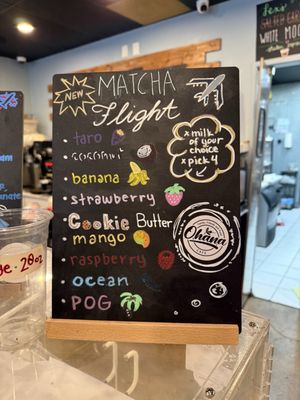 NEW
MATCHA
Flight
taro
banana
strawberry
Cookie Butter
mango
raspberry
ocean
POG
* milk of your choice
* pick 4
Ohana
WHITE MOCHA
20oz